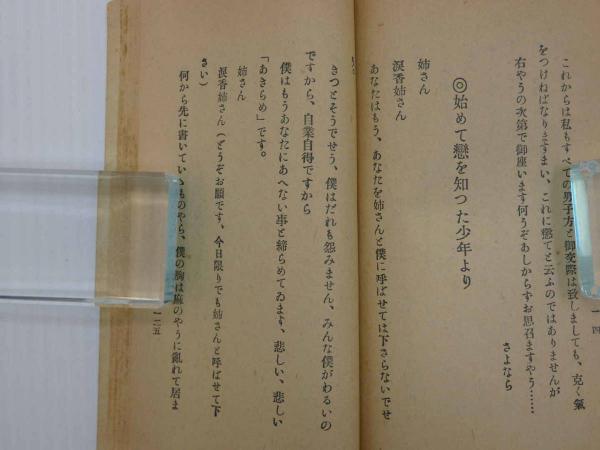 これからは私もすべての男子方と御交際は致しましても、克く氣
をつけねばなりますまい、これに懲てと云ふのではありませんが
右やうの次第で御座います何うぞあしからずお思召ますやう……
さよなら
◎始めて戀を知つた少年より
姉さん
淚香姉さん
あなたはもう、あなたを姉さんと僕に呼ばせては下さらないでせ
きつとそうでせう、僕はだれも怨みません、みんな僕がわるいの
ですから、自業自得ですから
僕はもうあなたにあへない事と締らめてゐます、悲しい、悲しい
「あきらめ」です。
姉さん
淚香姉さん(どうぞお願です、今日限りでも姉さんと呼ばせて下
さい)
何から先に書いていゝものやら、僕の胸は麻のやうに亂れて居ま
一二五